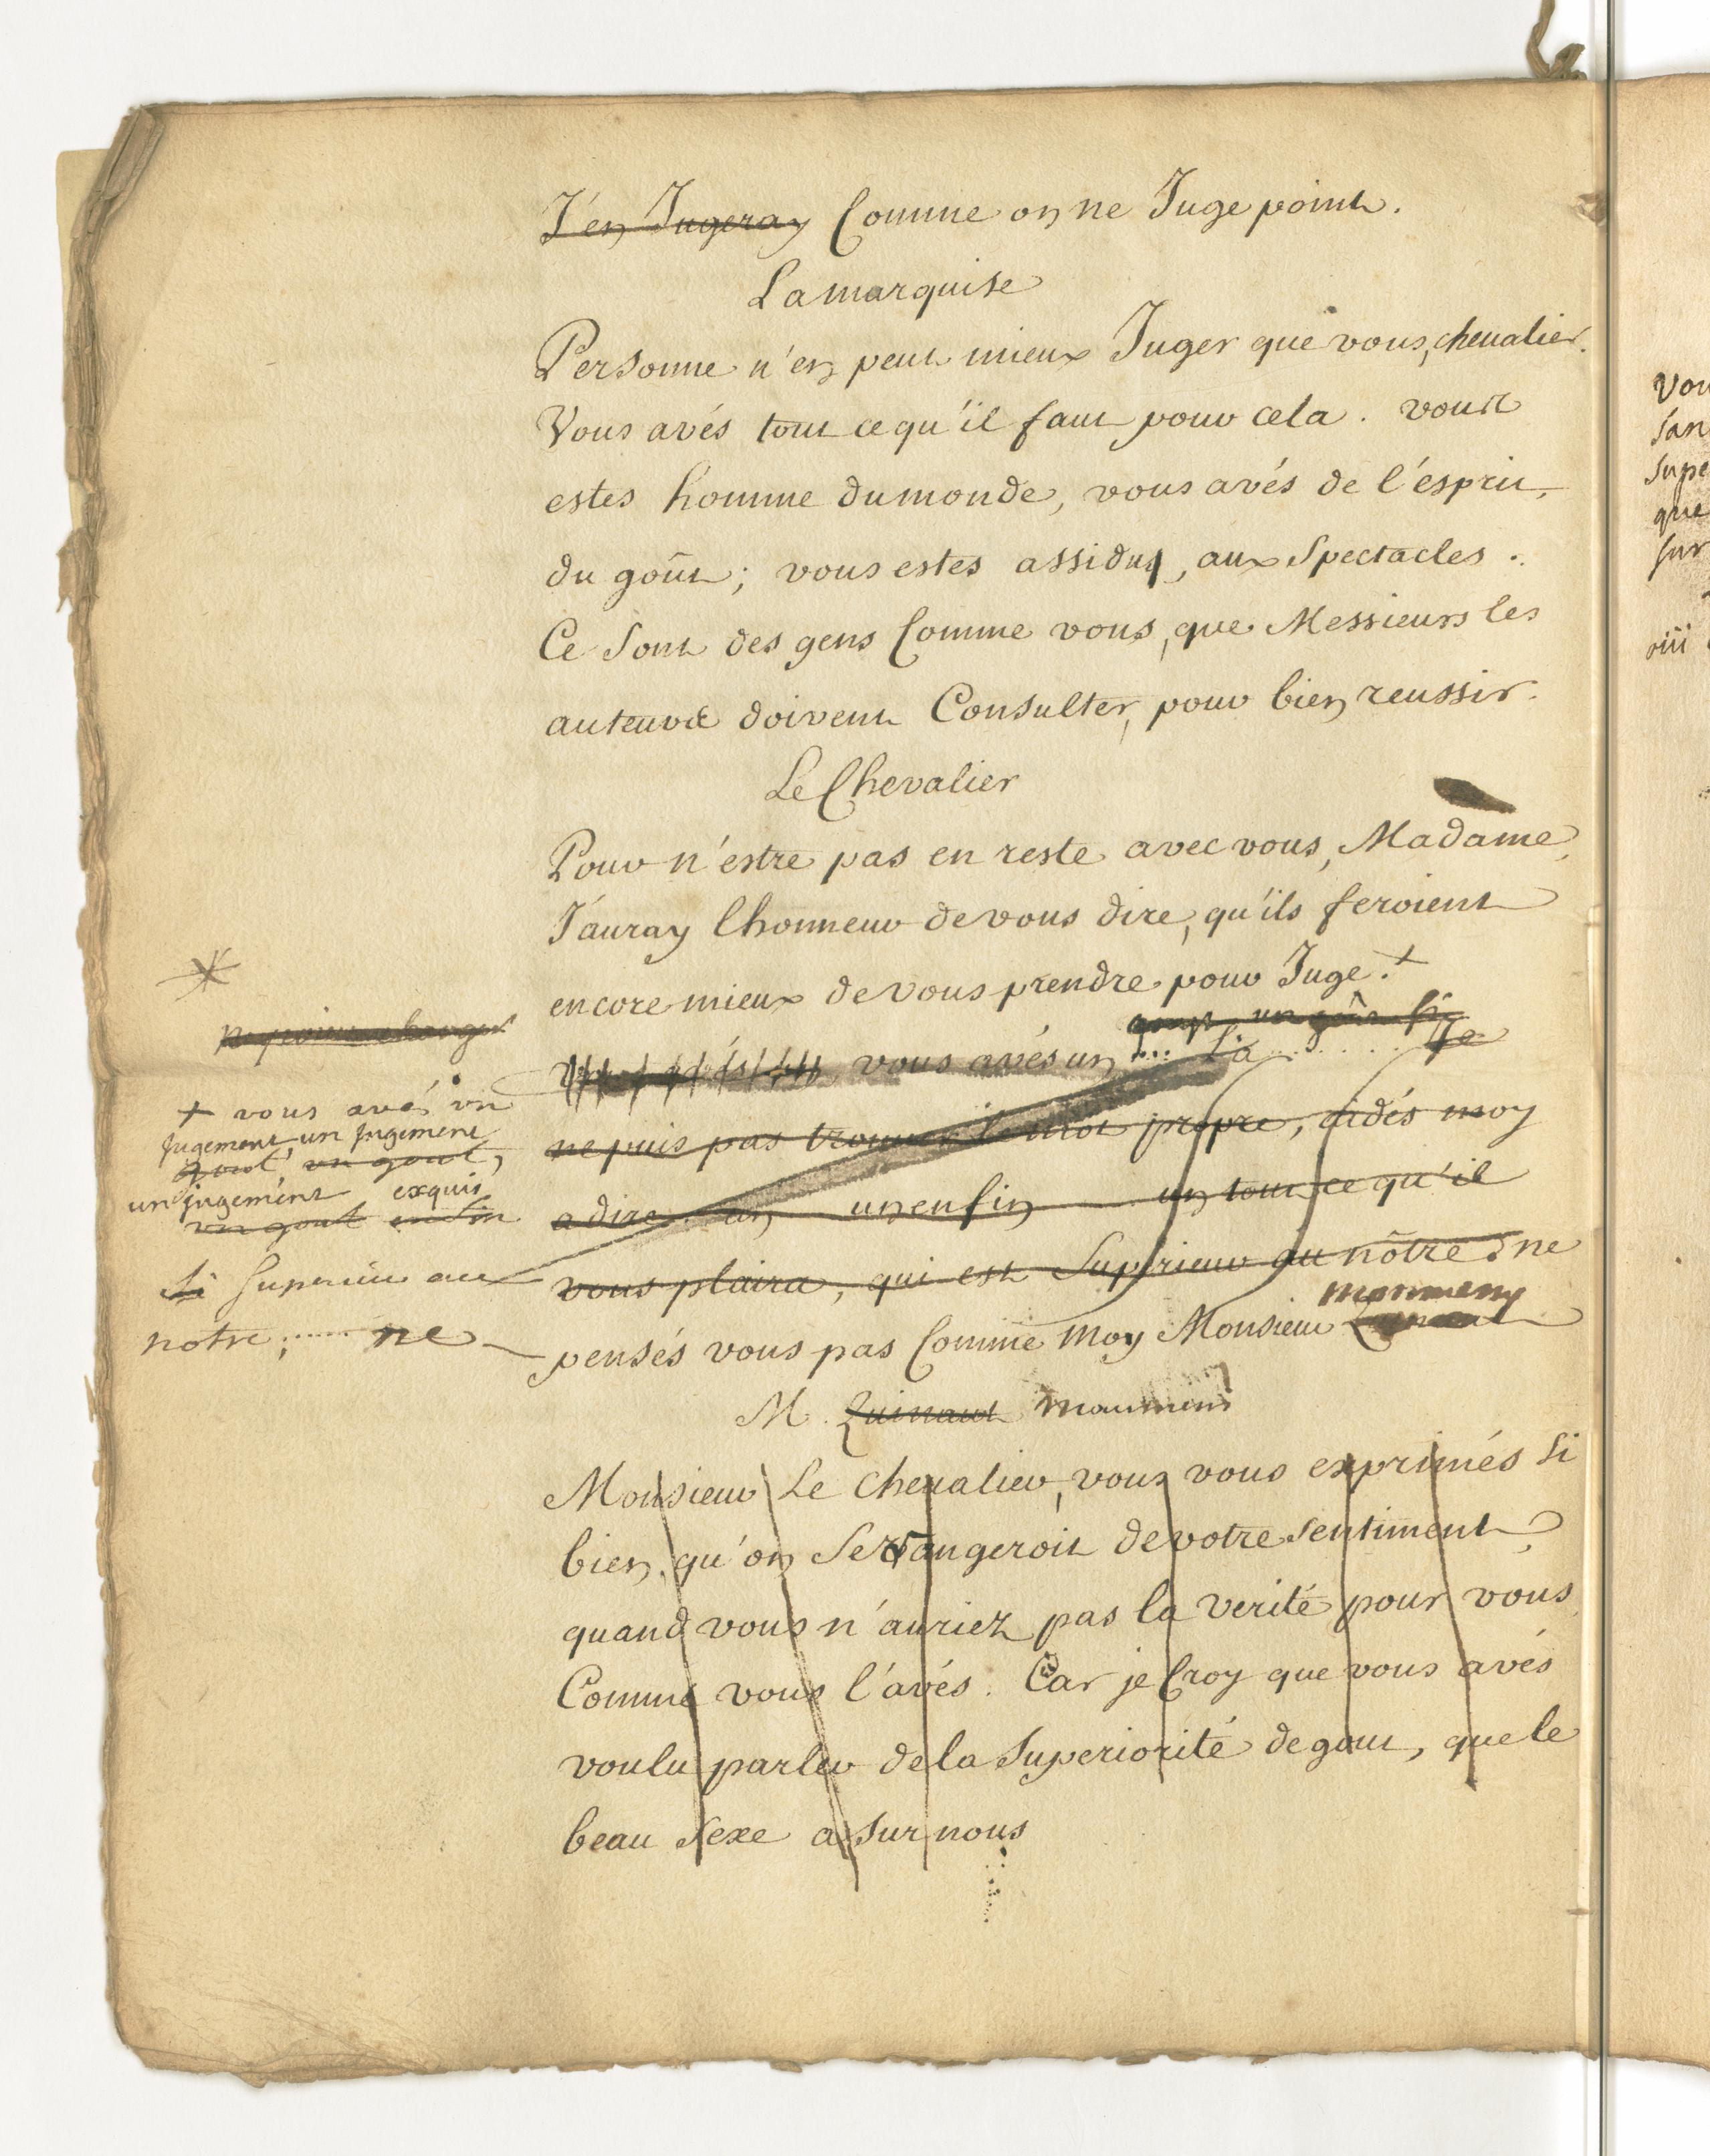 J'en Jugeray Comme on ne Juge point.
La marquise
Personne n'en peut mieux Juger que vous, chevalier.
Vous avés tout ce qu'il faut pour cela. vous
estes homme du monde, vous avés de l'esprit,
du goût; vous estes assidu, aux Spectacles.
Ce Sont des gens Comme vous, que Messieurs les
auteurs doivent Consulter, pour bien reussir.
Le Chevalier
Pour n'estre pas en reste avec vous, Madame,
J'auray lhonneur de vous dire, qu'ils feroient
encore mieux de vous prendre pour Juge. +
vous avés un .... La ........ Je
ne puis pas trouver le mot propre, aidés moy
a dire un un enfin un tout ce qu'il
vous plaira, qui est Superieur au nôtre. ne
pensés vous pas Comme moy Monsieur
M. Quinaut
Monsieur Le chevalier, vous vous exprimés si
bien, qu'on Se rangeroit de votre sentiment,
quand vous n'auriez pas la verité pour vous
Comme vous l'avés. Car je Croy que vous avés
voulu parler de la Superiorité de gout, que le
beau Sexe a sur nous
+ vous avés un
jugement un jugement
gout, un gout,
un jugement exquis
un gout enfin
si superieur au
notre; ...... ne
Vou
san
supe
que
sur